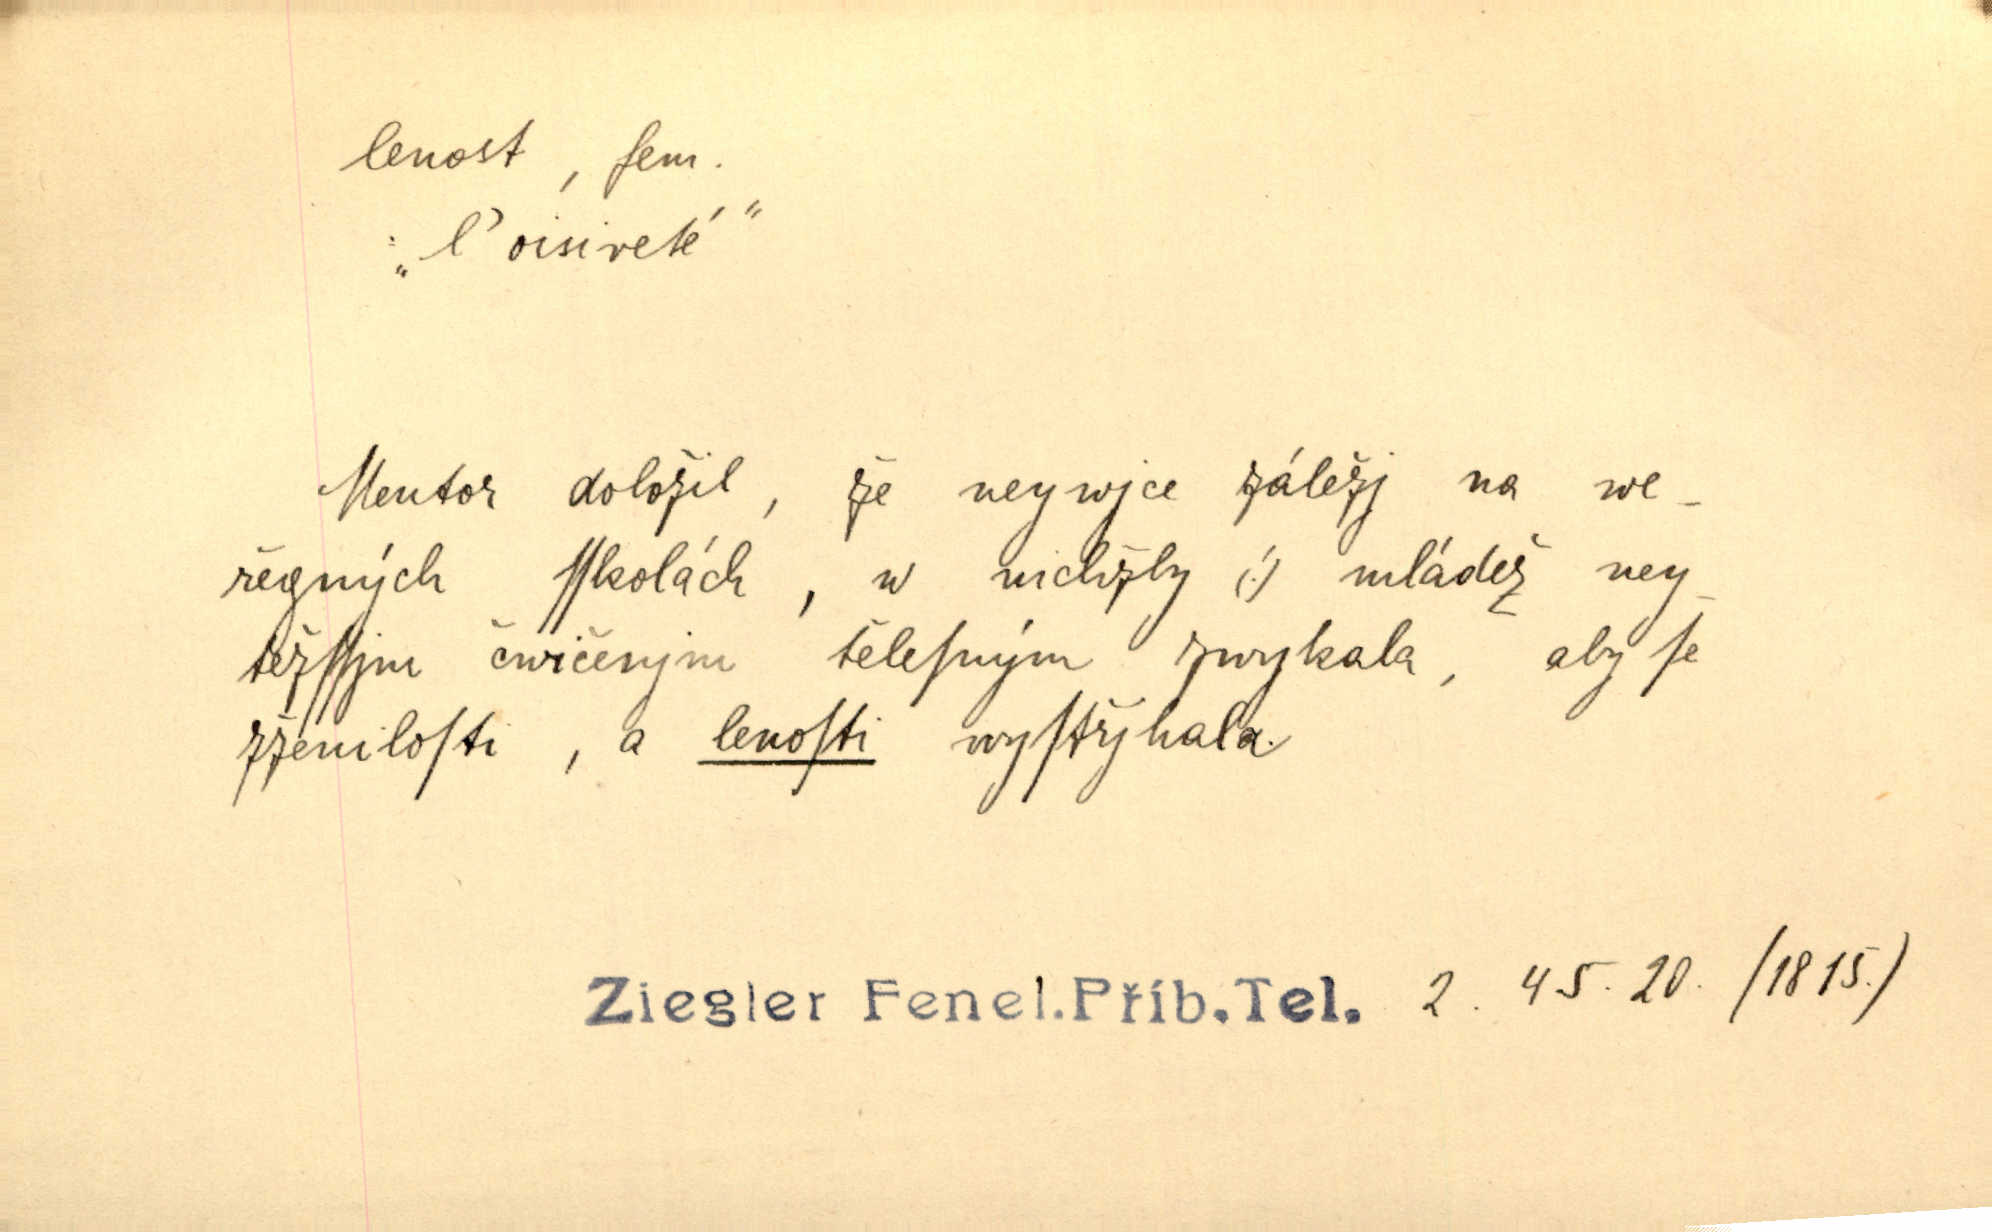 lenost, fem.
: „l'oisiveté"
Mentor doložil, že neywjce záležj na we-
řegných sſkolách, w nichžby (!) mládež ney-
těžsſjm cwičenjm tělesným zwykala, aby ſe
zženiloſti, a lenoſti wyſtřýhala.
Ziegler Fenel.Příb.Tel. 2. 45. 20. (1815.)